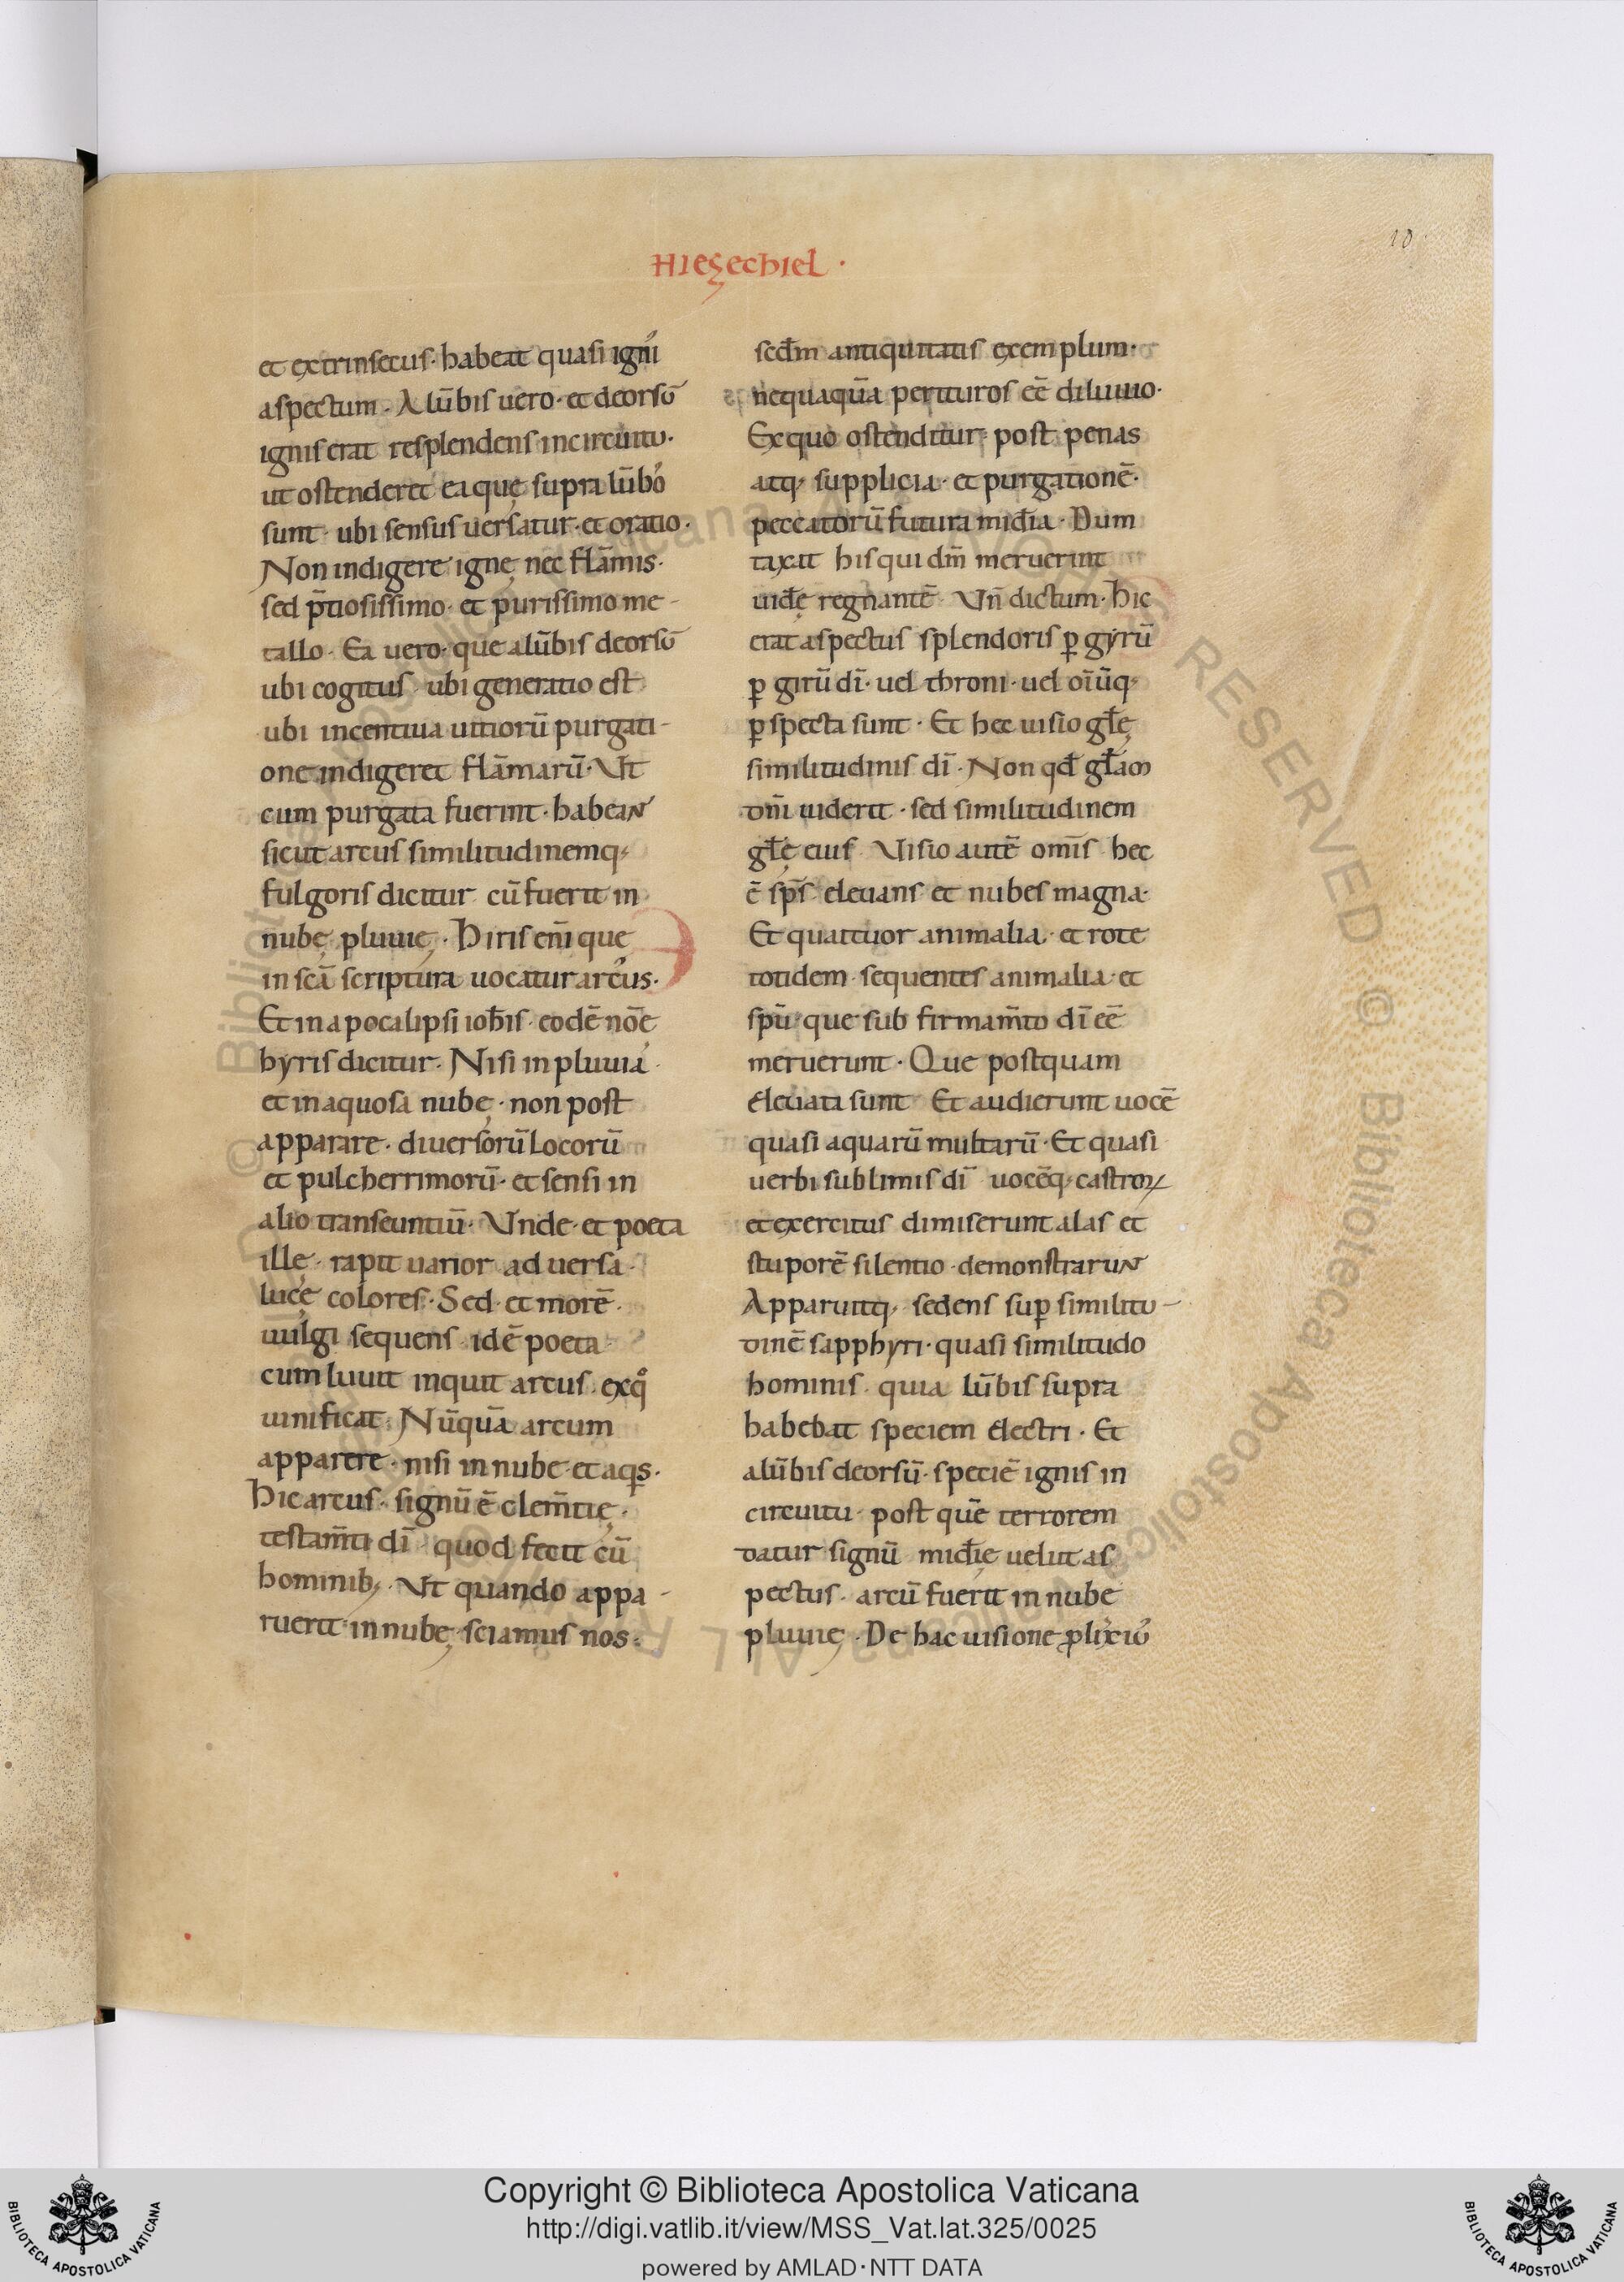 HIEZECHIEL ·
10
et extrinsecus · habeat quasi igniū
aspectum · A lūbis uero · et deorsū
ignis erat resplendens incircuitu ·
ut ostenderet ea quę supra lūbos
sunt · ubi sensus uersatur · et oratio ·
Non indigere ignę nec flāmis ·
sed p̄tiosissimo · et purissimo me-
tallo · Ea uero · que alūbis deorsū
ubi cogitus · ubi generatio est
ubi incentiua uitiorū purgati-
one indigeret flāmarū · Vt
cum purgata fuerint · habeant
sicut arcus similitudinemq;
fulgoris dicitur cū fuerit in
nubę pluuię · Hiris eni que
in scā scriptura uocatur arcus ·
Et in apocalipsi ioħis · eodē nōe
hyris dicitur · Nisi in pluuia ·
et in aquosa nubę · non post
apparare · diuersorū locorū
et pulcherrimorū · et sensi in
alio transeuntiū · Vnde · et poeta
illę · rapit uarior aduersa ·
lucę colores · Sed et morē ·
uulgi sequens idē poeta
cum luuit inquit arcus · exq°
uinificat · Nūquā arcum
apparere · nisi in nube et aqs ·
Hic arcus · signū ē clem̄tię ·
testam̄ti dī quod fecit cū
hominib; · Vt quando appa-
ruerit in nubę · sciamus nos ·
scđm antiquitatis exemplum ·
nequaquā perituros eē diluuio ·
Ex quo ostenditur · post penas
atq; supplicia · et purgationē ·
peccatorū futura mid̄ia · Dum
taxat his qui dm̄ meruerint
uid̄ę regnantē Vn̄ dictum · Hic
erat aspectus splendoris p̱ gyrū
p̱ girū dī · uel throni · uel oīūq;
p̱specta sunt · Et hec uisio gl̄ę
similitudinis dī · Non qd̄ gl̄am
dn̄i uiderit · sed similitudinem
gl̄ę eius Visio autē omīs hec
ē sp̄s eleuans et nubes magna ·
Et quattuor animalia · et rote
totidem · sequentes animalia · et
spū · que sub firmam̄to dī eē
meruerunt · Que postquam
eleuata sunt Et audierunt uocē
quasi aquarū multarū · Et quasi
uerbi sublimis dī uocēq; castroꝝ
et exercitus dimiserunt alas et
stuporē silentio · demonstrarunt
Apparuitq; sedens sup̱ similitu-
dinē sapphyri · quasi similitudo
hominis · quia lūbis supra
habebat speciem electri · Et
alūbis deorsū · speciē ignis in
circuitu · post quē terrorem
datur signū mid̄ię uelut as
pectus · arcū fuerit in nube
pluuię · De hac uisione ꝓlixius
Copyright © Biblioteca Apostolica Vaticana
http://digi.vatlib.it/view/MSS_Vat.lat.325/0025
powered by AMLAD·NTT DATA
BIBLIOTECA APOSTOLICA VATICANA
BIBLIOTECA APOSTOLICA VATICANA